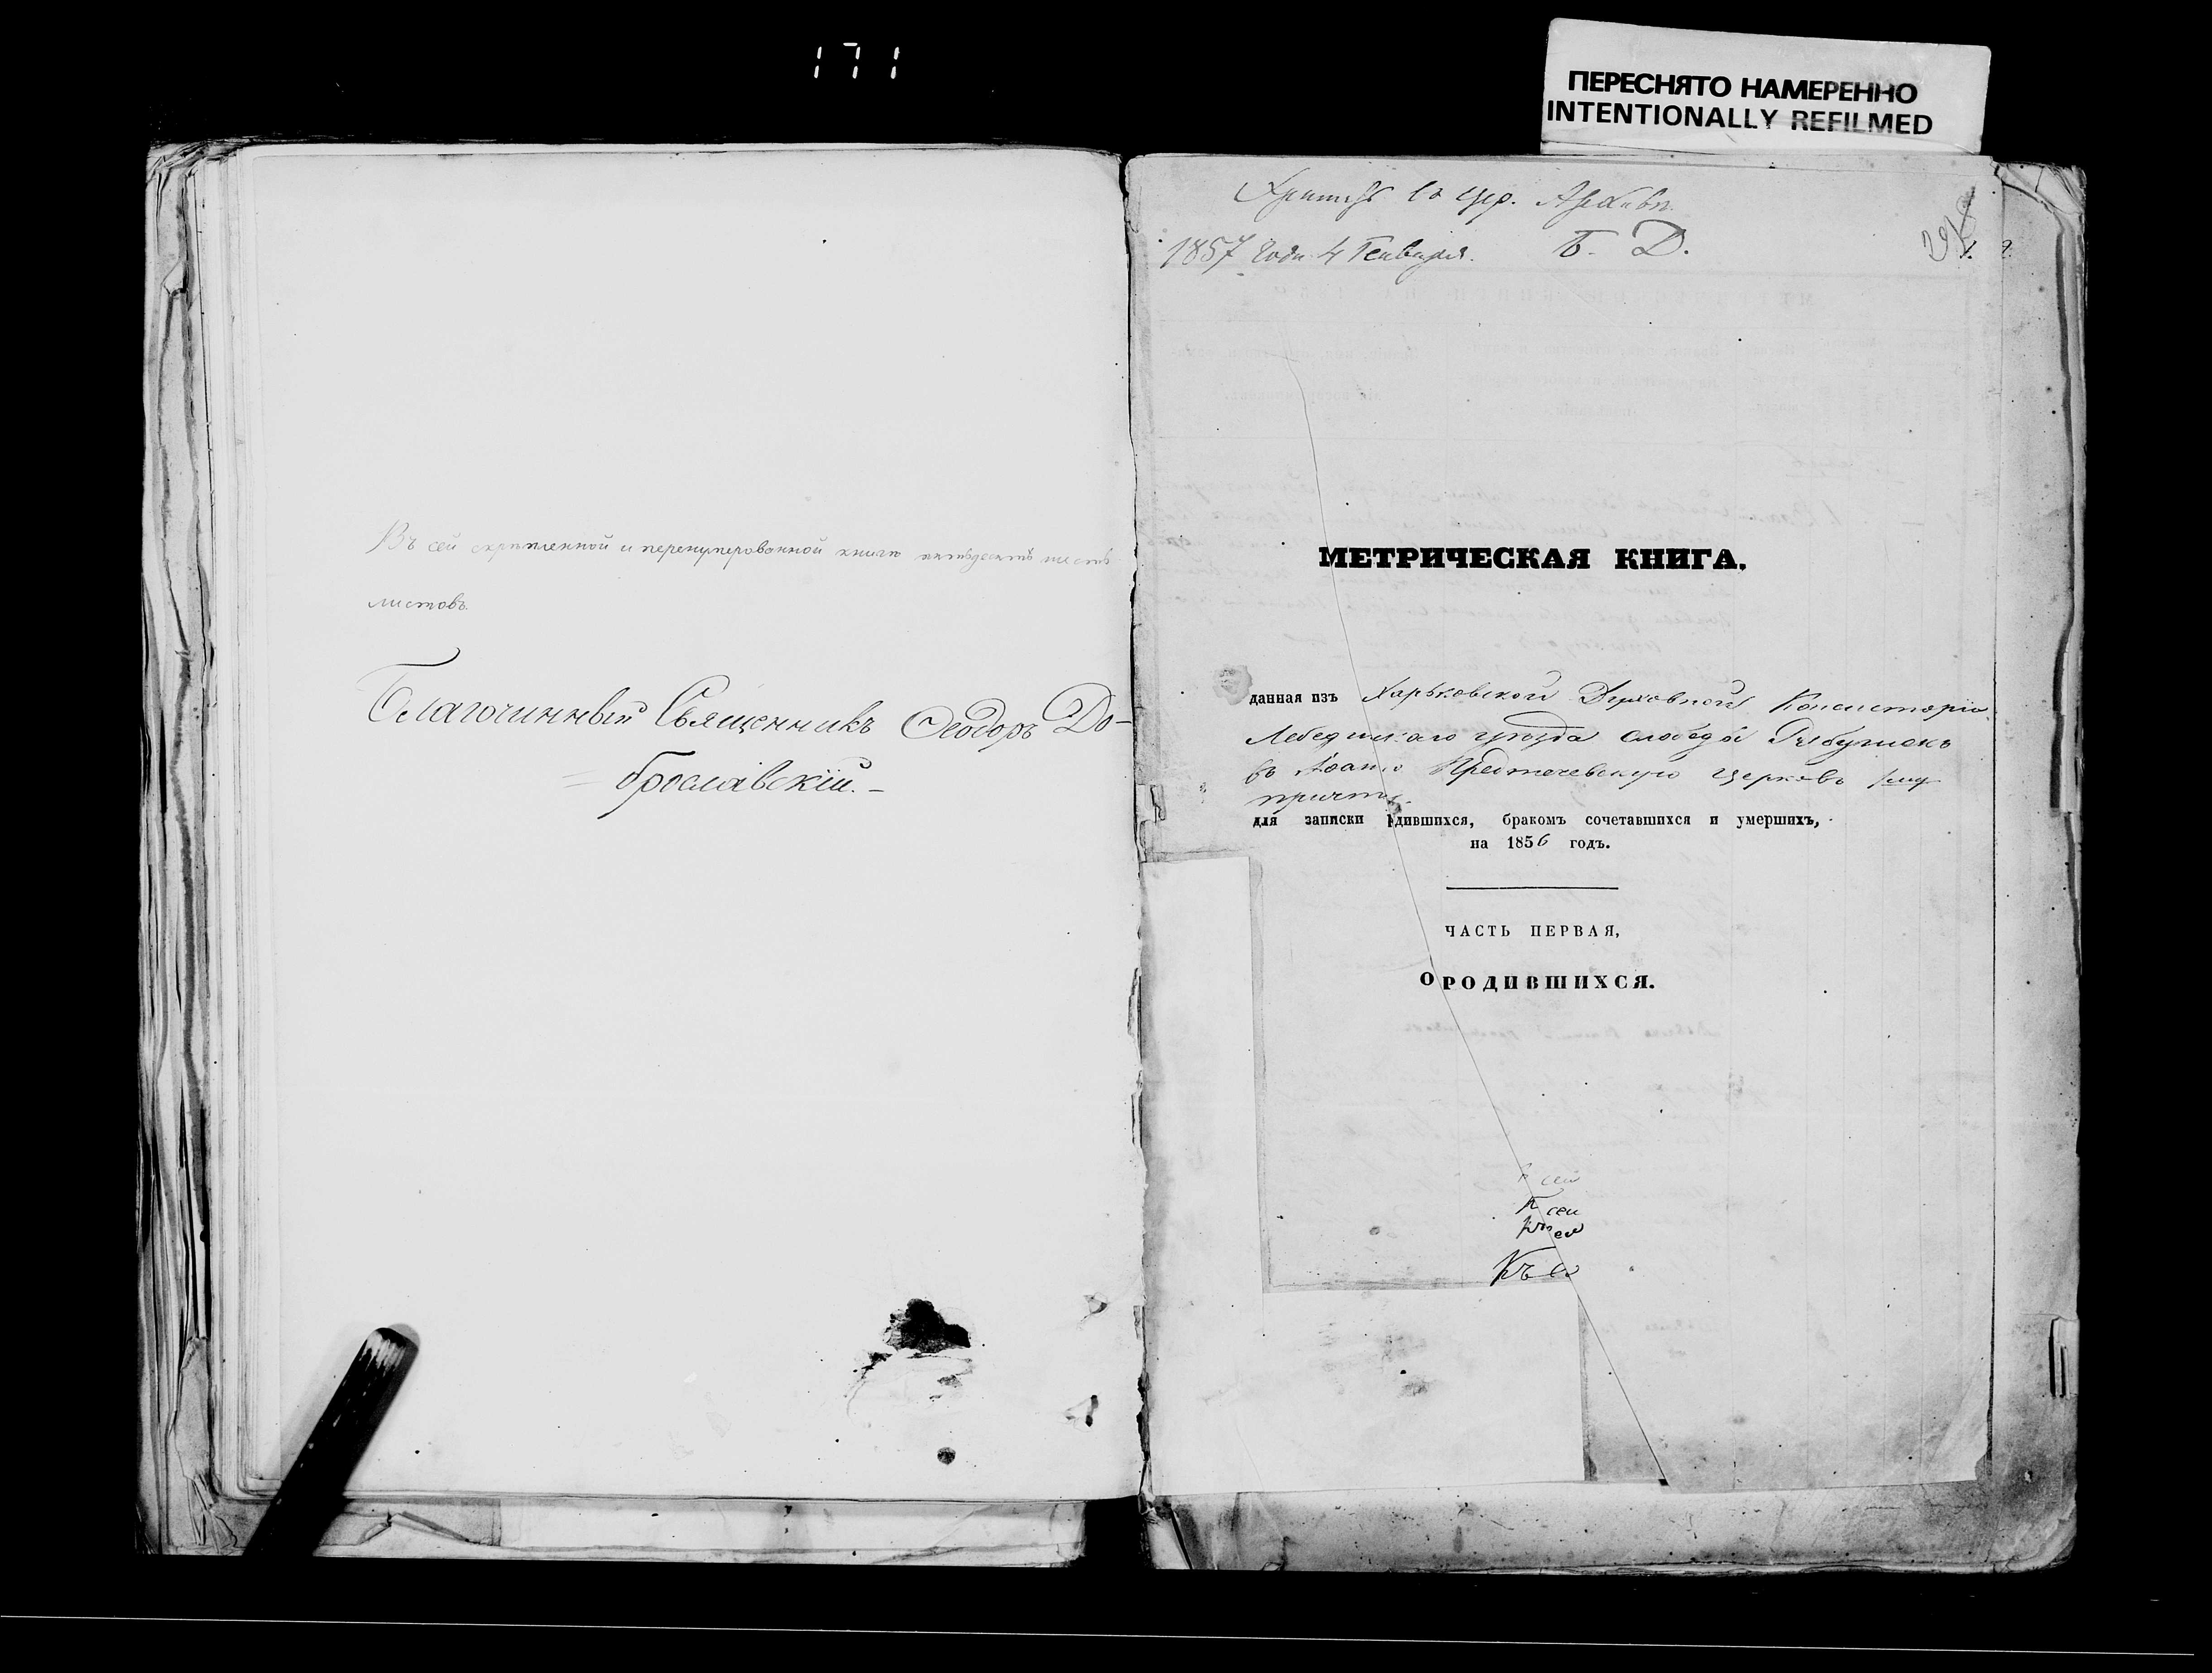 171
ПЕРЕСНЯТО НАМЕРЕННО
INTENTIONALLY REFILMED
Въ сей скрѣпленной и перенумерованной книгѣ пятьдесятъ шесть
листовъ.
Благочинный Священникъ Ѳеодоръ До-
брославскій.
Хранить въ цер. Архивѣ.
1857 года 4 Генваря. Б. Д.
МЕТРИЧЕСКАЯ КНИГА.
данная изъ Харьковской Духовной Консисторіи
Лебединскаго уѣзда слободы
въ Іоанно Предтечевскую церковь
причту.
для записки родившихся, бракомъ сочетавшихся и умершихъ,
на 1856 годъ.
ЧАСТЬ ПЕРВАЯ,
О РОДИВШИХСЯ.
сей
сеи
Къ се